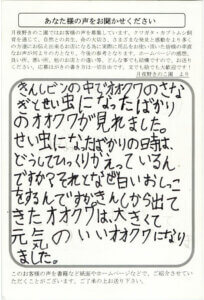 あなたの声をお聞かせください
月夜野きのこ園ではお客様の声を募集しています。クワガタ・カブトムシ飼
育を通じ、自然との共生、命の大切さ、さまざまな発見と感動をより多く
の方達にお伝え出来るお店になる為に
月夜野きのこ園 より
きんしビンの中でオオクワのさな
ぎとせい虫になったばかり
のオオクワが見れました。
せい虫になったばかりの時は、
どうしてひっくりかえっているん
ですか?それとなぜ白いおしっこ
をするんですかきんしから出て
きたオオクワは、大きくて
元気のいいオオクワになり
ました。
このお客様の声を書籍など紙面やホームページなどで、ご紹介させてい
ただくことがございます。ご了承の上お送り下さい。